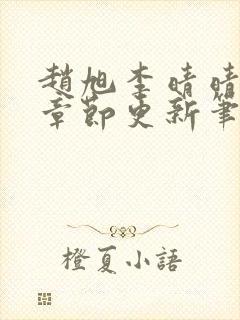 趙旭李晴晴
章節更新筆
橙夏小語